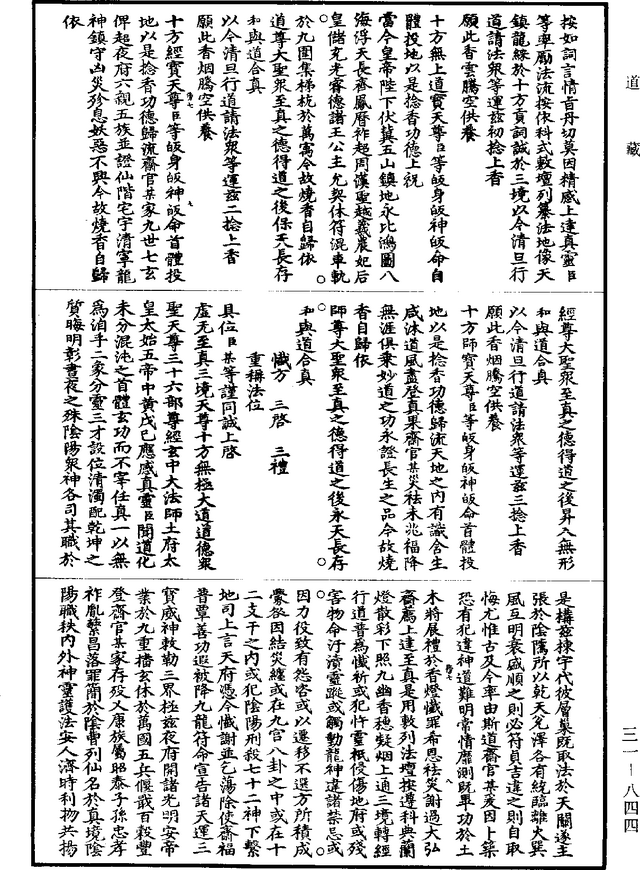 道藏
按如詞言情旨丹切莫因精感上達真靈臣
等率勵法流按依科式敷壇列纂法地像天
鎮龍緣於十方貢詞誠於三境以今清旦行
道請法衆等運茲初捻上香
願此香雲騰空供養
十方無上道寶天尊臣等皈身皈神皈命自
體投地以是捻香功德上祝
當今皇帝陛下伏冀五山鎮地永比鴻圖八
海浮天長齋鳳曆祚超周漢靈越羲農妃后
皇儲充光睿德諸王公主允契休符混車軌
於九圍集梯杭於萬寓今故燒香自歸依
道尊大聖衆至真之德得道之後保天長存
和與道合真
以今清旦行道請法衆等運茲二捻上香
願此香烟騰空供養
十方經寶天尊臣等皈身皈神皈命首體投
地以是捻香功德歸流齋官某家九世七玄
俾超夜府六親五族並證仙階宅宇清寧龍
神鎮守凶災殄息妖惡不興今故燒香自歸
依
經尊大聖衆至真之德得道之後昇入無形
和與道合真
以今清旦行道請法衆等運茲三捻上香
願此香烟騰空供養
十方師寶天尊臣等皈身皈神皈命首體投
地以是捻香功德歸流天地之內有識含生
咸沐道風盡登真果齋官某災祛未兆福降
無涯俱乘妙道之功永證長生之品今故燒
香自歸依
師尊大聖衆至真之德得道之後永天長存
和與道合真
懺方 三啓 三禮
重稱法位
具位臣某等謹同誠上啓
虛无至真三境天尊十方無極大道道德衆
聖天尊三十六部尊經玄中大法師土府太
皇太始五帝中黃戊己應感真靈臣聞道化
未分混沌之首體玄功而不宰任真一以無
爲洎乎二象分靈三才設位清濁配乾坤之
質晦明彰晝夜之殊陰陽衆神各司其職於
是構茲棟宇代彼層巢既取法於天闕遂主
張於陰隲所以乾天兌澤各有統臨離火巽
風互明衰盛順之則必符貞吉違之則自取
悔尤惟古及今率由斯道齋官某爰因卜築
恐有犯違神道難明常情靡測既畢功於土
木將展禮於香燈懺罪希恩祛災謝過大弘
齋薦上達至真是用敷列法壇按遵科典蘭
燈散彩下照九幽香穗凝烟上通三境轉經
行道普爲懺祈或犯忤靈祇侵傷地府或殘
害物命汙瀆靈蹤或觸動龍神違諸禁忌或
因力役致有怨咨或以遷移不選方所積成
釁咎因結災纏或在九宮八卦之中或在十
二支干之內或犯陰陽刑殺七十二神下繫
地司上言天府憑今懺謝並乞蕩除使齋福
普覃善功遐被降九龍符命宣告諸天運三
寶威神敕勒三界極茲夜府開諸光明安帝
業於九重播玄休於萬國五兵偃戢百穀豐
登齋官某家存歿乂康族屬昭泰子孫忠孝
祚胤蕃昌落罪簡於陰曹列仙名於真境陰
陽職秩內外神靈護法安人濟時利物共揚
三一—八四四